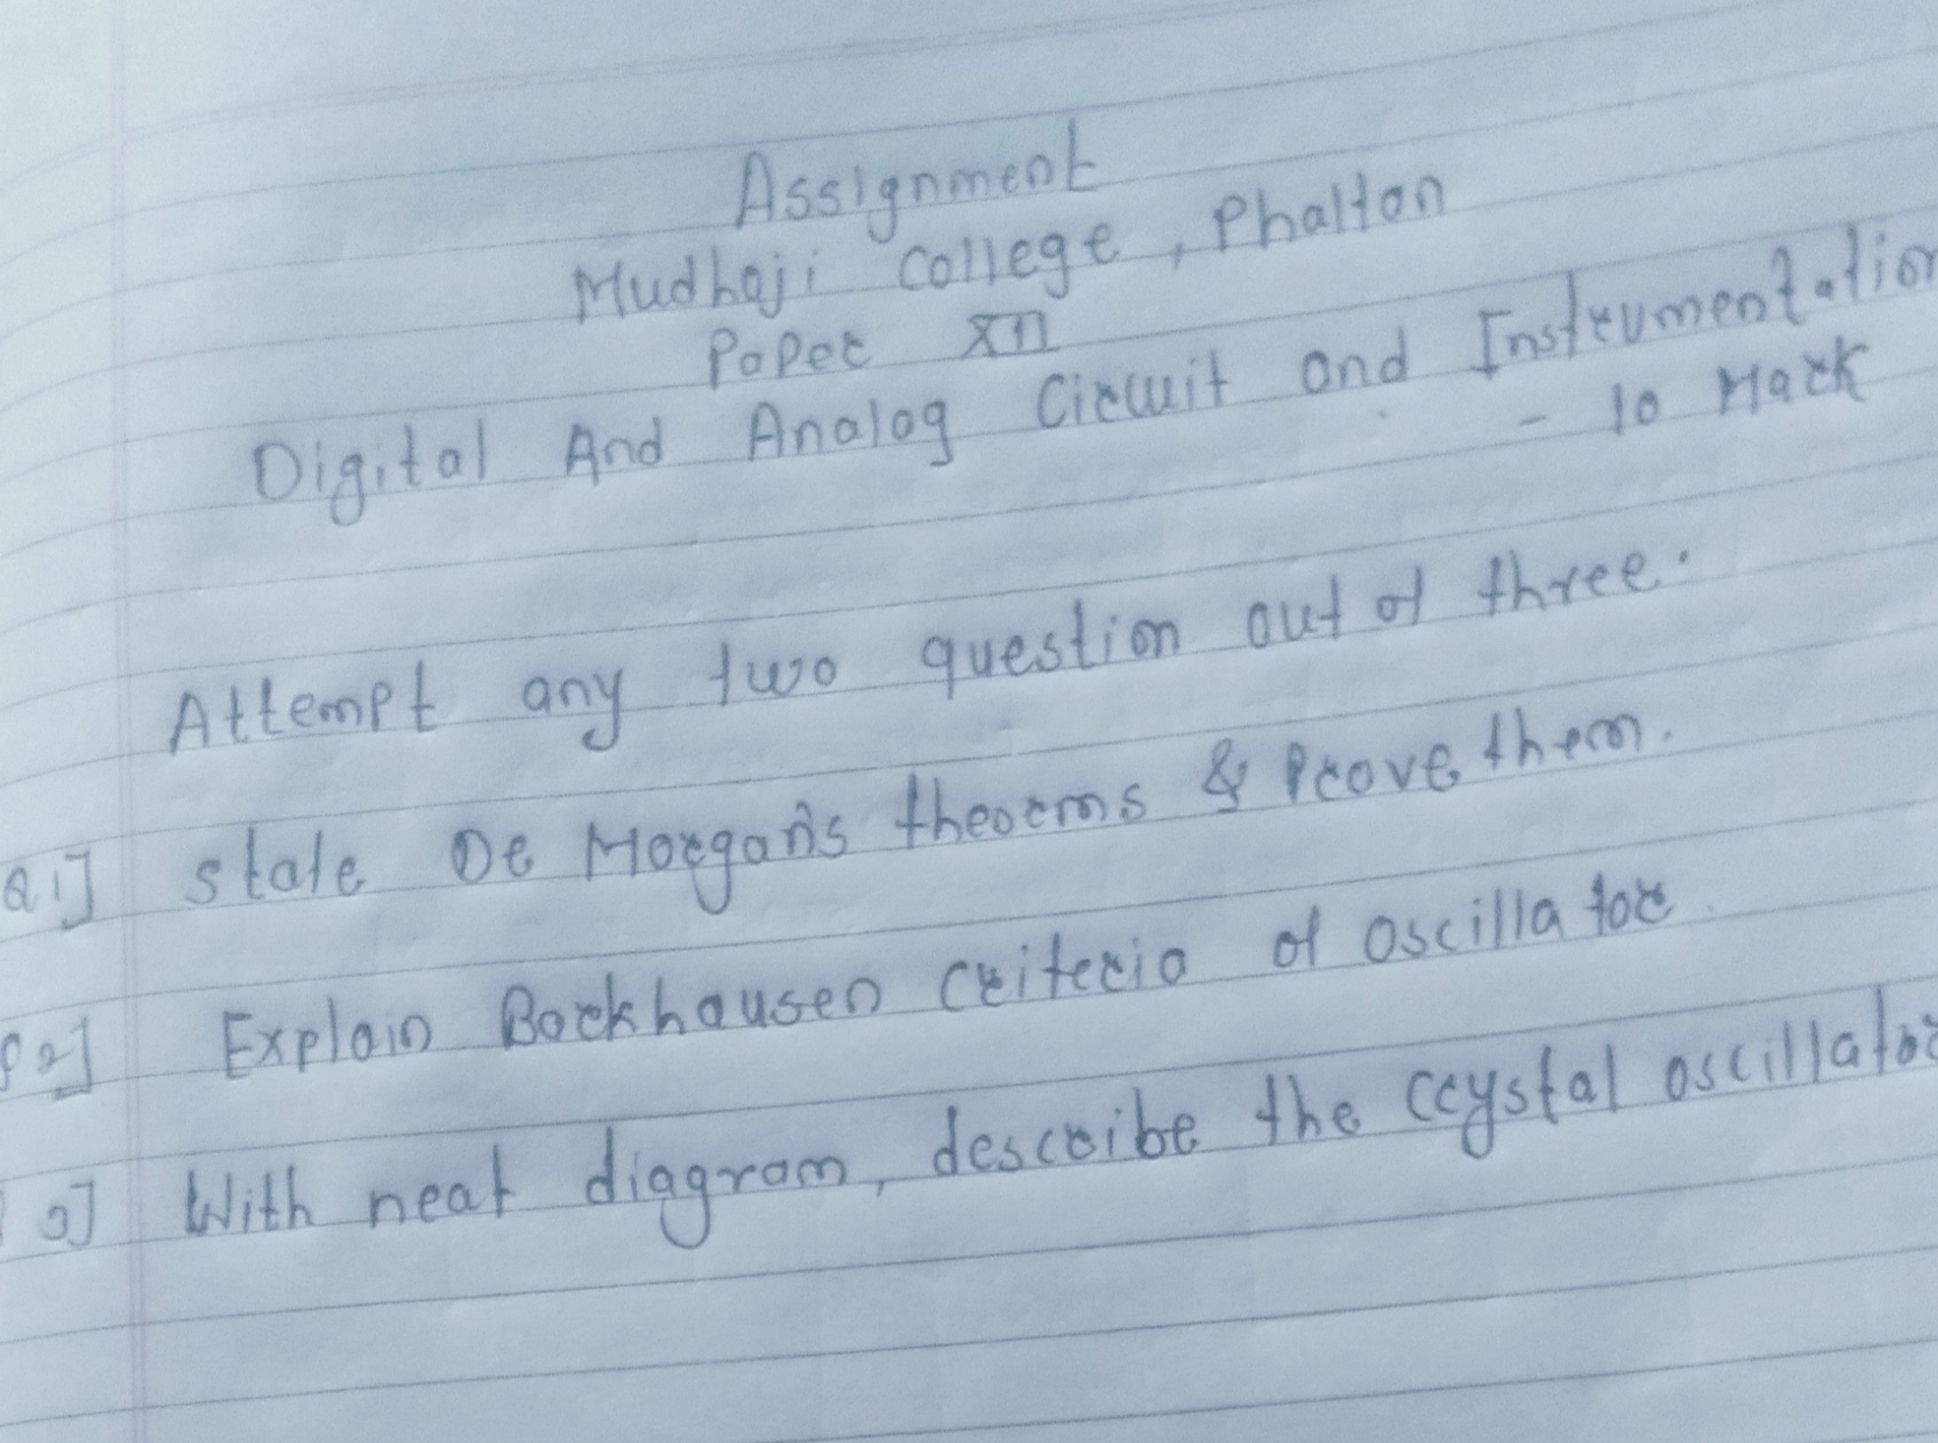 Assignment
Mudhoji College, Phaltan
Paper XII
Digital And Analog Circuit and Instrumentation
- 10 Mark
Attempt any two question out of three.
Q1] state De Morgan's theorms & Prove them.
Q2] Explain Barkhausen criteria of oscillator.
3] With neat diagram, describe the crystal oscillator